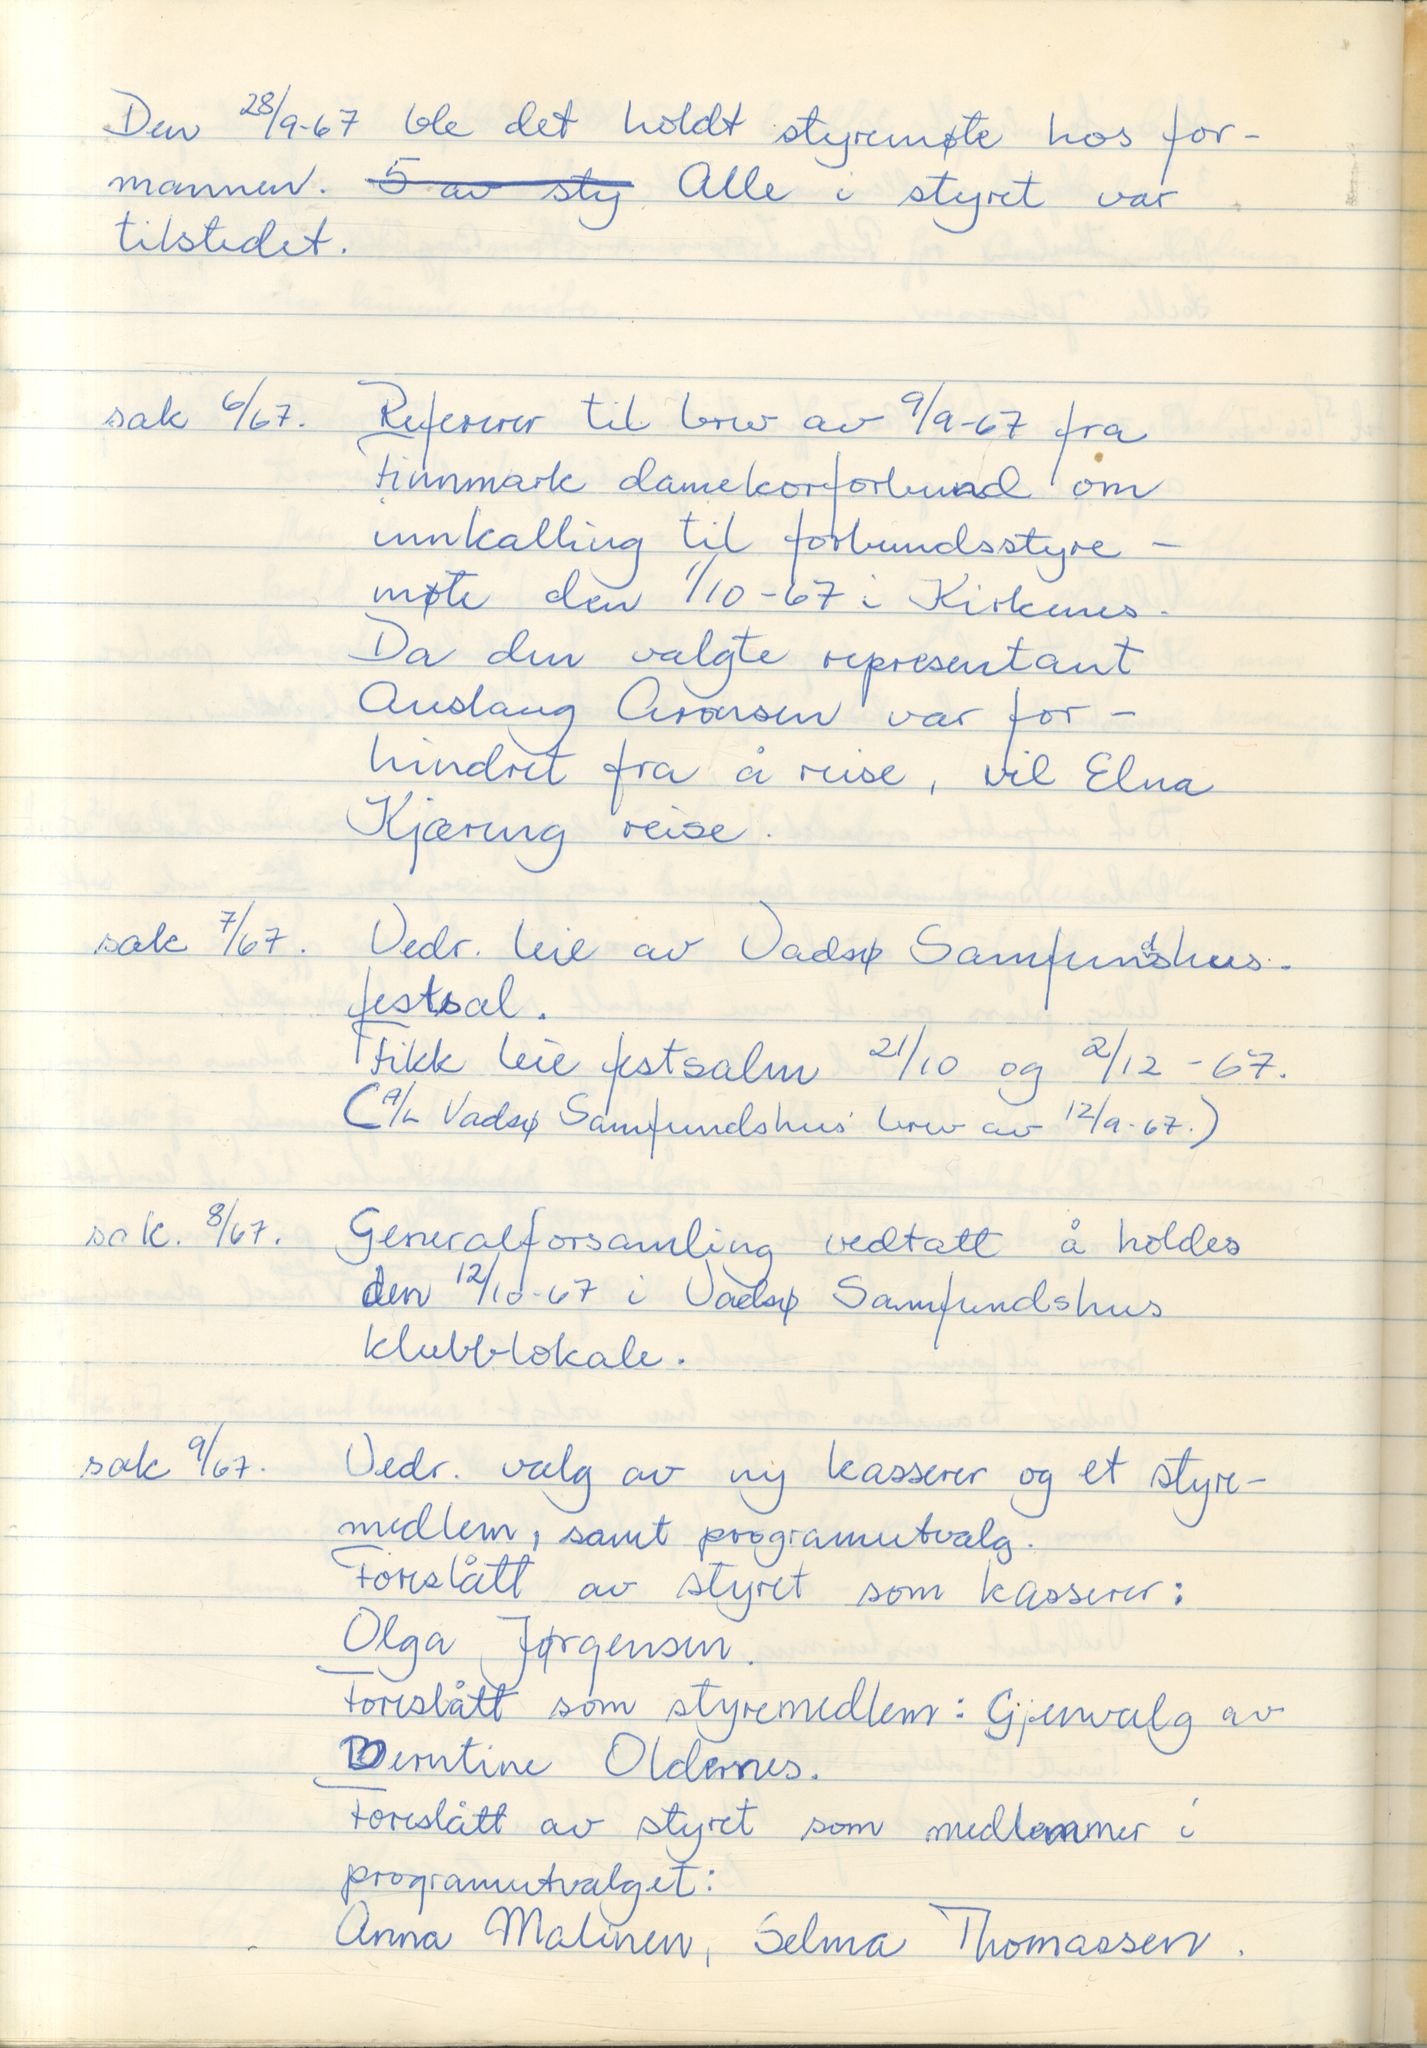 Den 28/9-67 ble det holdt styremøte hos for-
mannen. 5 av sty Alle i styret var
tilstedet.
sak 6/67. Refererer til brev av 9/9-67 fra
Finnmark damekorforbund om
innkalling til forbundsstyre-
møte den 1/10-67 i Kirkenes.
Da den valgte representant
Auslaug Aronsen var for-
hindret fra å reise, vil Elna
Kjæring reise.
sak 7/67. Vedr. leie av Vadsø Samfundshus.
festsal.
Fikk leie festsalen 21/10 og 2/12-67.
(A/L Vadsø Samfundshus brev av 12/9-67.)
sak. 8/67. Generalforsamling vedtatt å holdes
den 12/10-67 i Vadsø Samfundshus
klubblokale.
sak 9/67. Vedr. valg av ny kasserer og et styre-
medlem, samt programutvalg.
Foreslått av styret som kasserer:
Olga Jørgensen.
Foreslått som styremedlem: Gjenvalg av
Berntine Oldernes.
Foreslått av styret som medlemmer i
programutvalget:
Anna Malinen, Selma Thomassen.